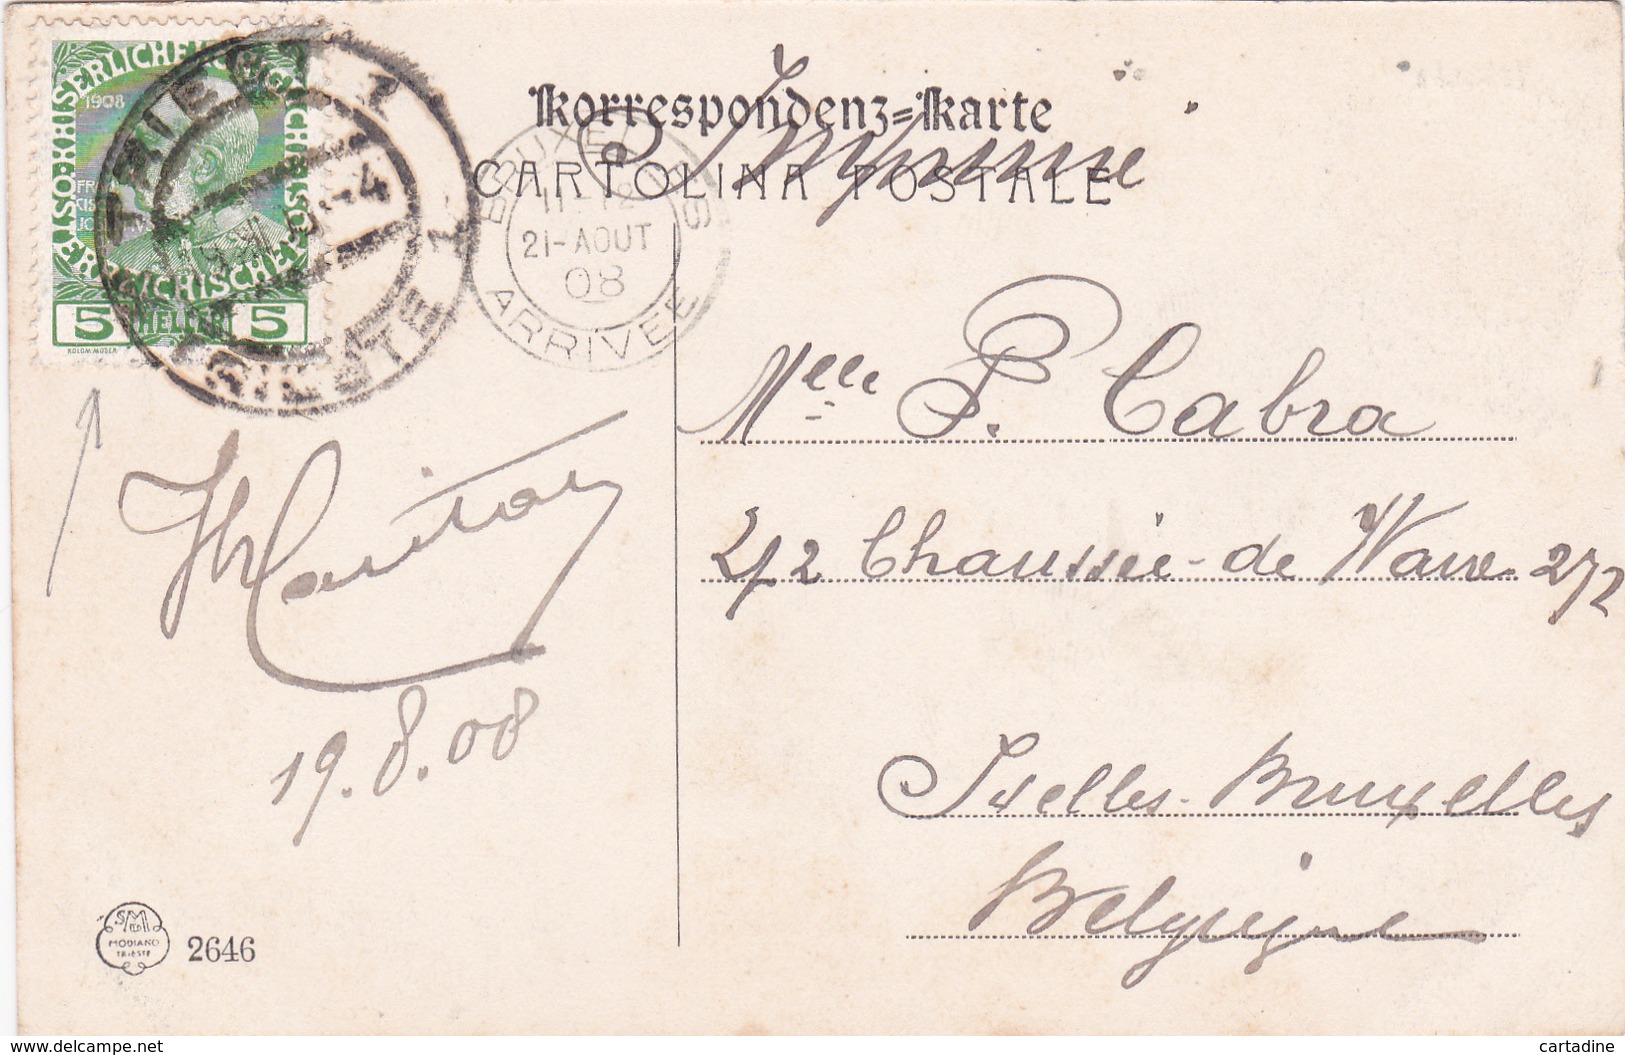 Korrespondenz=Karte
CARTOLINA POSTALE
Imprimé
1908
5 HELLER 5
KOLOM.MOSER
TRIEST 1
TRIESTE 1
BRUXELLES
11-12
21-AOUT
08
ARRIVEE
Melle P. Cabra
272 Chaussée-de Wavre 272
Ixelles-Bruxelles
Belgique
19.8.08
SMD
MODIANO
TRIESTE
2646
www.delcampe.net
cartadine